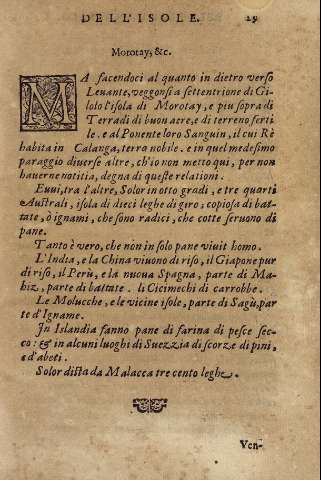 DELL'ISOLE. 29
Morotay, &c.
MA facendoci al quanto in dietro verso
Leuante, veggonsi a settentrione di Gi-
lolo l'isola di Morotay, e piu sopra di
Terra di di buon aere, e di terreno ferti
le. e al Ponente loro Sanguin, il cui Rè
habita in Calanga, terra nobile. e in quel medesimo
paraggio diuerse altre, ch'io non metto qui, per non
hauerne notitia, degna di queste relationi.
Euui, tra l'altre, Solor in otto gradi, e tre quarti
Australi, isola di dieci leghe di giro; copiosa di bat-
tate, ò ignami, che sono radici, che cotte seruono di
pane.
Tanto è vero, che non in solo pane viuit homo.
L'India, e la China viuono di riso, il Giapone pur
di riso, il Perù, e la nuoua Spagna, parte di Ma-
hiz, parte di battate. li Cicimechi di carrobbe.
Le Molucche, e le vicine isole, parte di Sagù, par
te d'Igname.
In Islandia fanno pane di farina di pesce sec-
co: & in alcuni luoghi di Suezzia di scorze di pini,
e d'abeti.
Solor dista da Malacca tre cento leghe.
Ven-